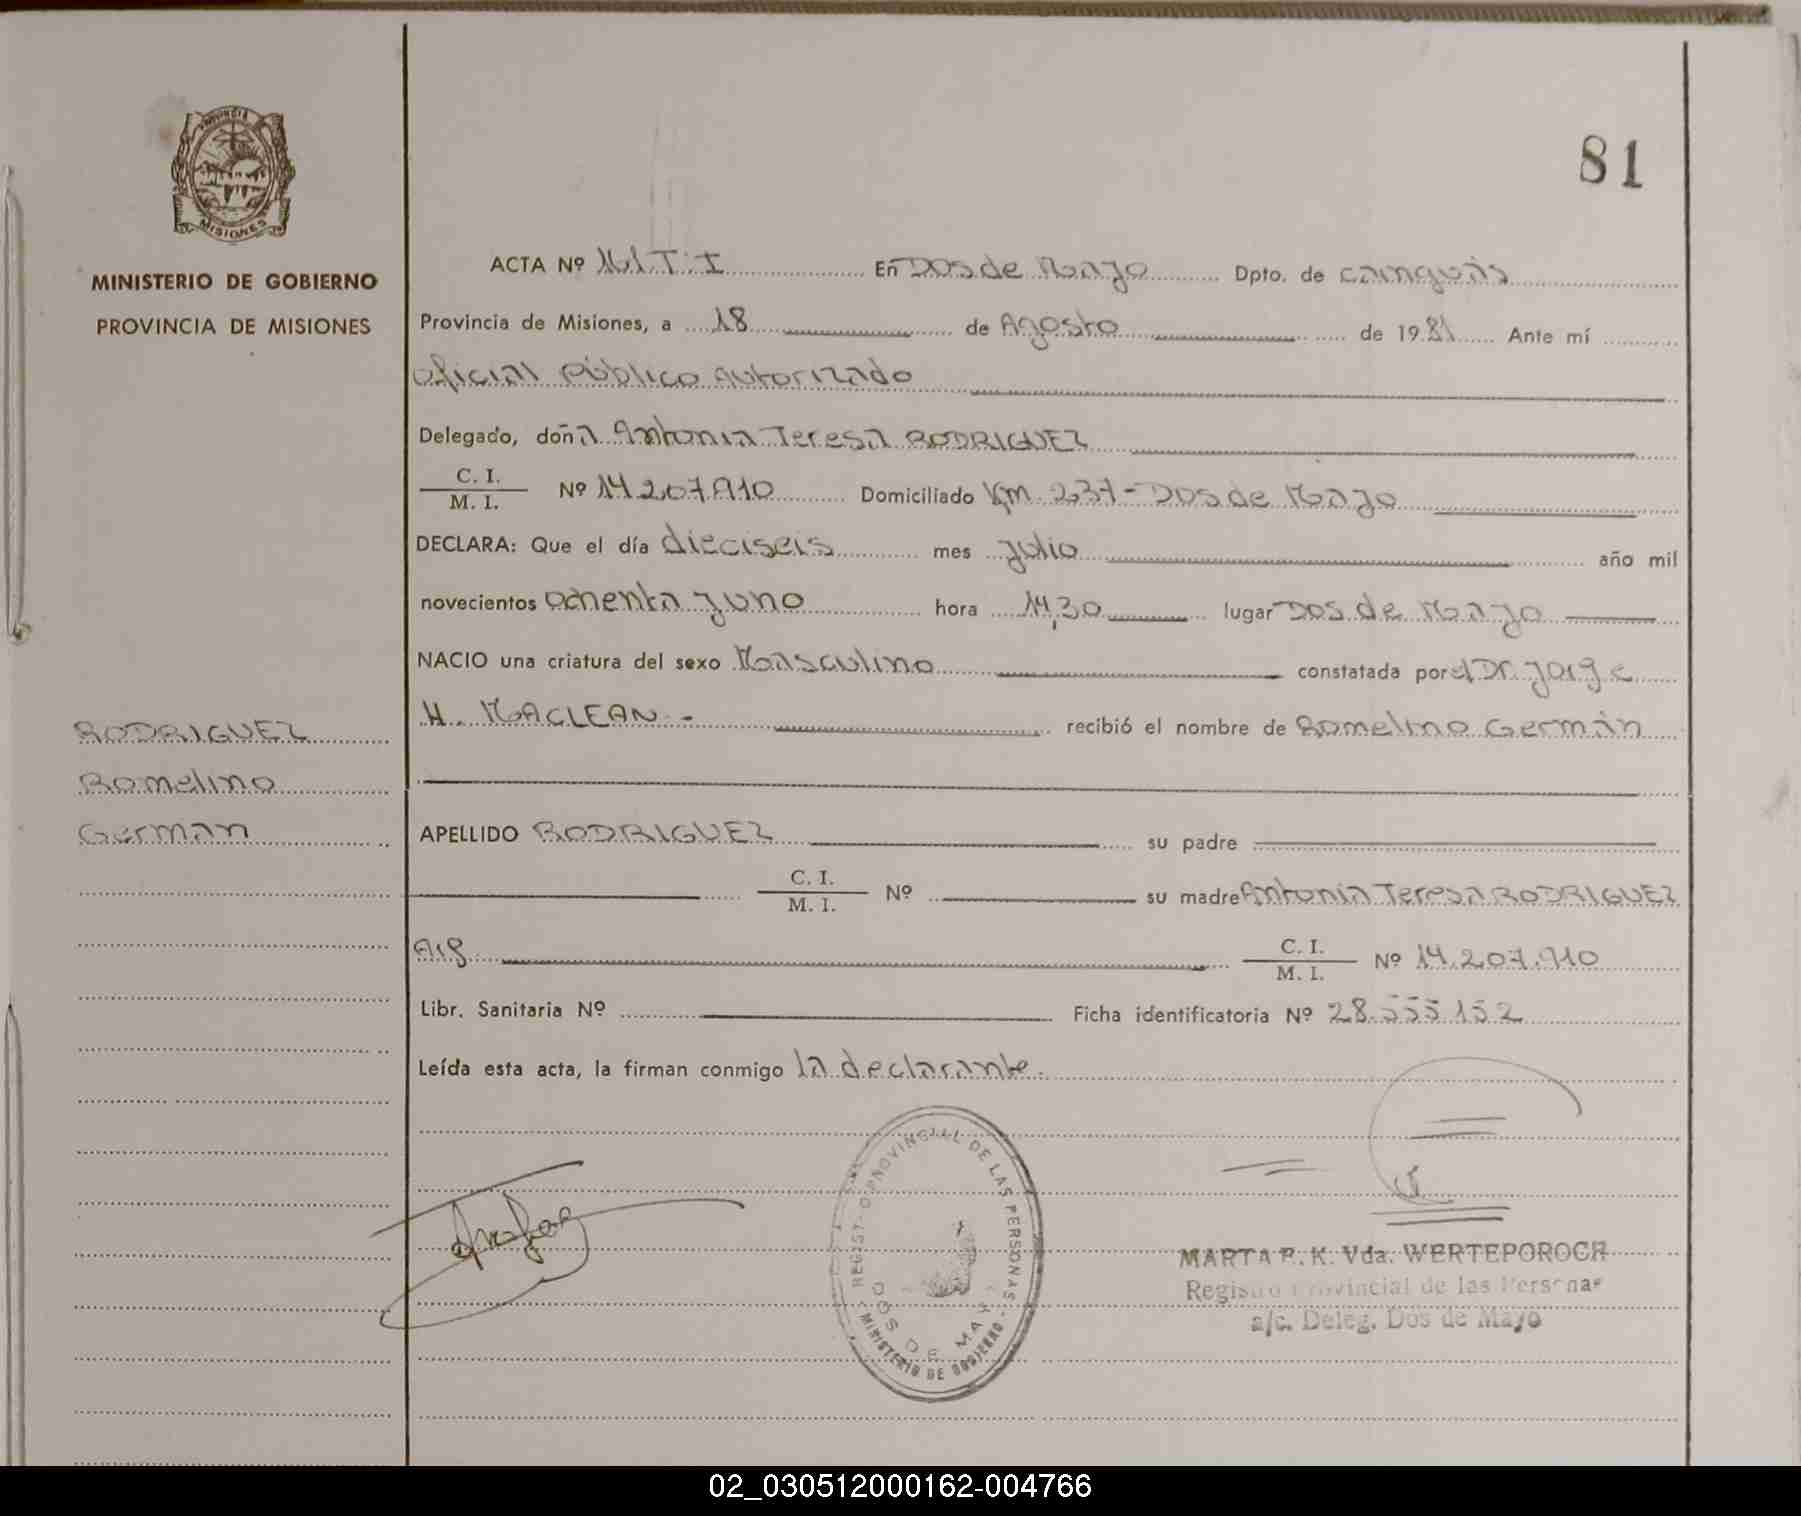 PROVINCIA
MISIONES
MINISTERIO DE GOBIERNO
PROVINCIA DE MISIONES
81
ACTA Nº 161 T: I En Dos de Mayo Dpto. de Cainguás
Provincia de Misiones, a 18 de Agosto de 1981 Ante mí
oficial público autorizado
Delegado, doña Antonia Teresa RODRIGUEZ
C. I.
M. I. Nº 14.207.910 Domiciliado Km. 237 - Dos de Mayo
DECLARA: Que el día dieciseis mes julio año mil
novecientos ochenta yuno hora 14,30 lugar Dos de Mayo
NACIO una criatura del sexo Masculino constatada por el Dr. Jorge
H. MACLEAN.- recibió el nombre de Romelino Germán
RODRIGUEZ
Romelino
Germán
APELLIDO RODRIGUEZ su padre
C. I.
M. I. Nº su madre Antonia Teresa RODRIGUEZ
C. I.
M. I. Nº 14.207.910
Libr. Sanitaria Nº Ficha identificatoria Nº 28.555.152
Leída esta acta, la firman conmigo la declarante.
PROVINCIAL DE LAS PERSONAS
DOS DE MAYO
MINISTERIO DE GOBIERNO
MARTA K. Vda. WERTEPOROCH
Registro Provincial de las Personas
a/c. Deleg. Dos de Mayo
02_030512000162-004766